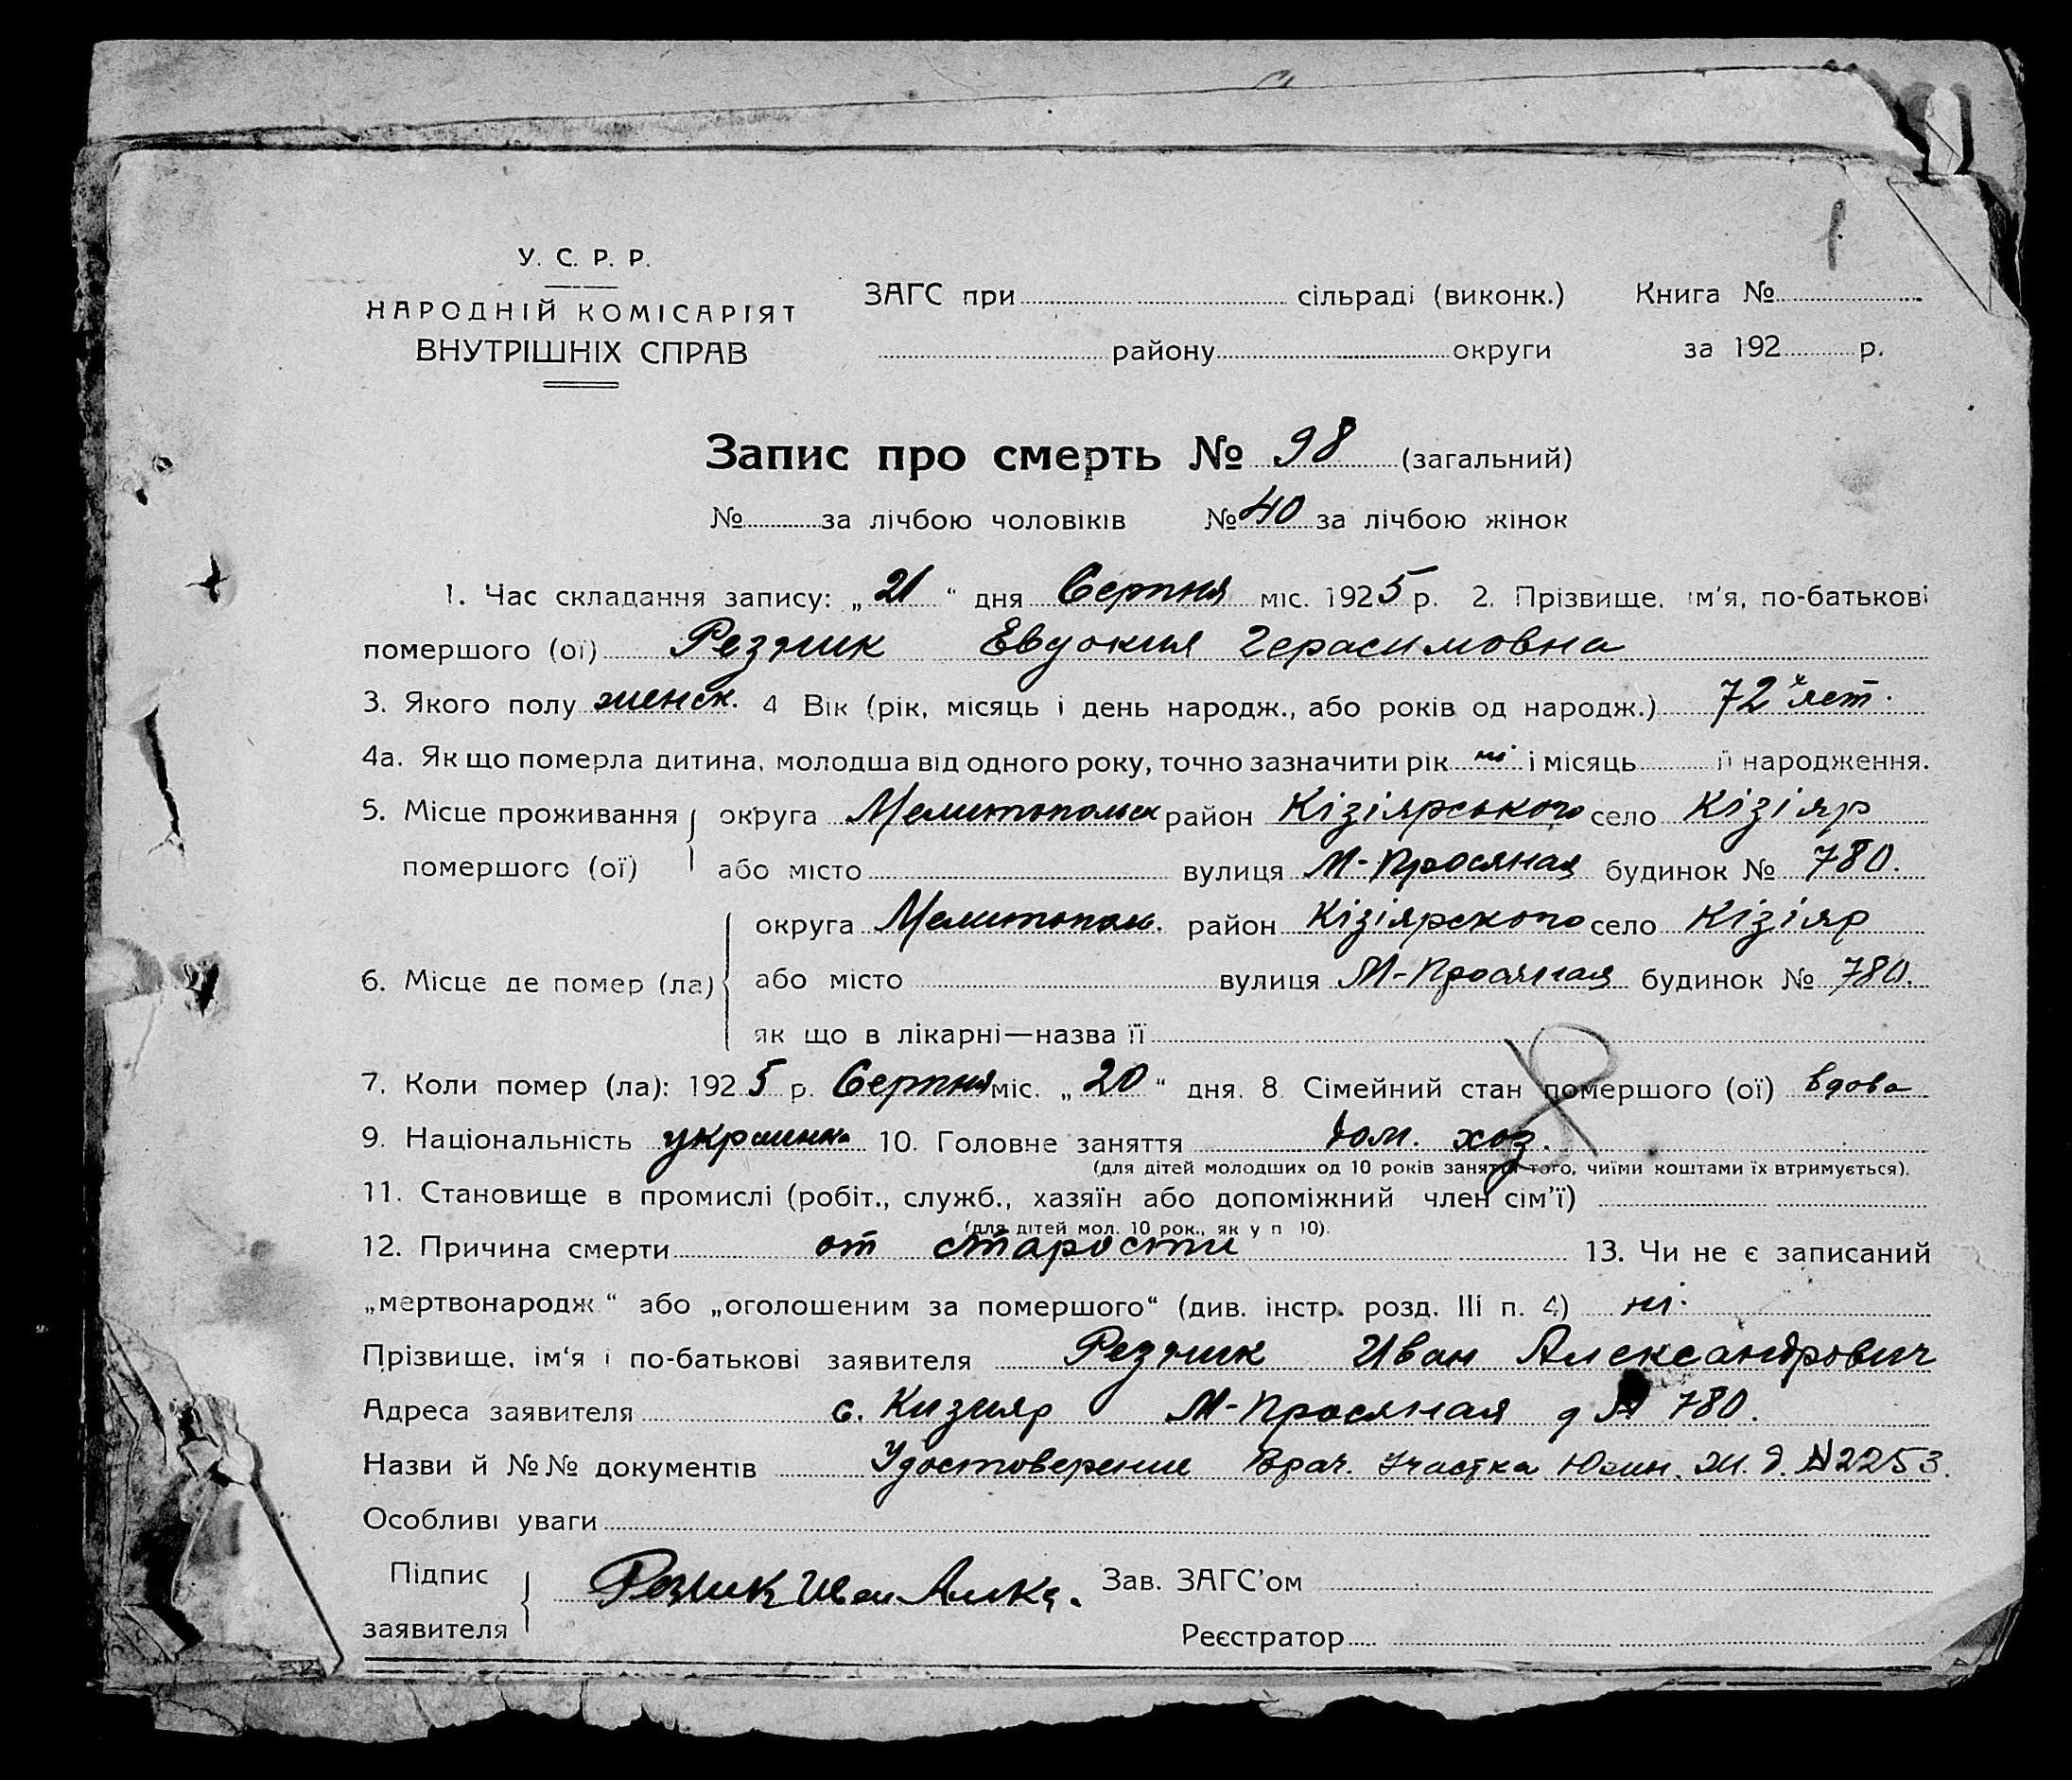 1
У. С. Р. Р.
НАРОДНІЙ КОМІСАРІЯТ
ВНУТРІШНІХ СПРАВ
ЗАГС при сільраді (виконк.) Книга №
району округи за 192 р.
Запис про смерть № 98 (загальний)
№ за лічбою чоловіків № 40 за лічбою жінок
1. Час складання запису: „21“ дня Серпня міс. 1925 р. 2. Прізвище, ім'я, по-батькові
помершого (ої) Резник Евдокия Герасимовна
3. Якого полу женск. 4 Вік (рік, місяць і день народж., або років од народж.) 72 лет.
4а. Як що померла дитина, молодша від одного року, точно зазначити рік ні і місяць її народження.
5. Місце проживання { округа Мелитопольск район Кізіярського село Кізіяр
помершого (ої) або місто вулиця М-Просяная будинок № 780.
округа Мелитопол. район Кізіярского село Кізіяр
6. Місце де помер (ла) { або місто вулиця М-Просяная будинок № 780.
як що в лікарні—назва її
7. Коли помер (ла): 1925 р. Серпня міс. „20“ дня. 8. Сімейний стан помершого (ої) вдова
9. Національність украинка 10. Головне заняття дом. хоз.
(для дітей молодших од 10 років заняття того, чиїми коштами їх втримується).
11. Становище в промислі (робіт., служб., хазяїн або допоміжний член сім'ї)
(для дітей мол. 10 рок., як у п 10).
12. Причина смерти от старости 13. Чи не є записаний
„мертвонародж.“ або „оголошеним за помершого“ (див. інстр. розд. III п. 4) ні.
Прізвище, ім'я і по-батькові заявителя Резник Иван Александрович
Адреса заявителя с. Кизияр М-Просяная д № 780.
Назви й №№ документів Удостоверение Врач. Участка Южн. Ж. д. № 2253.
Особливі уваги
Підпис { Резник Иван Зав. ЗАГС'ом
заявителя Реєстратор